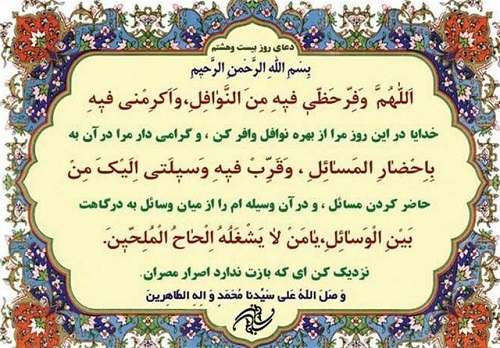 دعای روز بیست وهشتم
بِسْمِ اللهِ الرَّحْمنِ الرَّحیمِ
اَللّهُمَّ وَفِّرْ حَظّي فيهِ مِنَ النَّوٰافِلِ، وَاَکرِمْني فيهِ
خدایا در این روز مرا از بهره نوافل وافر کن ، و گرامی دار مرا درآن به
بِاِحْضٰارِ المَسٰائِلِ ، وَقَرِّبْ فيهِ وَسيلَتي اِلَيْکَ مِنْ
حاضر کردن مسائل ، و درآن وسیله ام را از میان وسائل به درگاهت
بَيْنِ الْوَسٰائِلِ،يٰامَنْ لاٰ يَشْغَلُهُ اِلْحٰاحُ الْمُلِحّينَ.
نزدیک کن ای که بازت ندارد اصرار مصران.
وَ صَلَ اللهُ عَلی سَیِّدنا مُحَمَدٍ وَ الِهِ الطّاهِرین